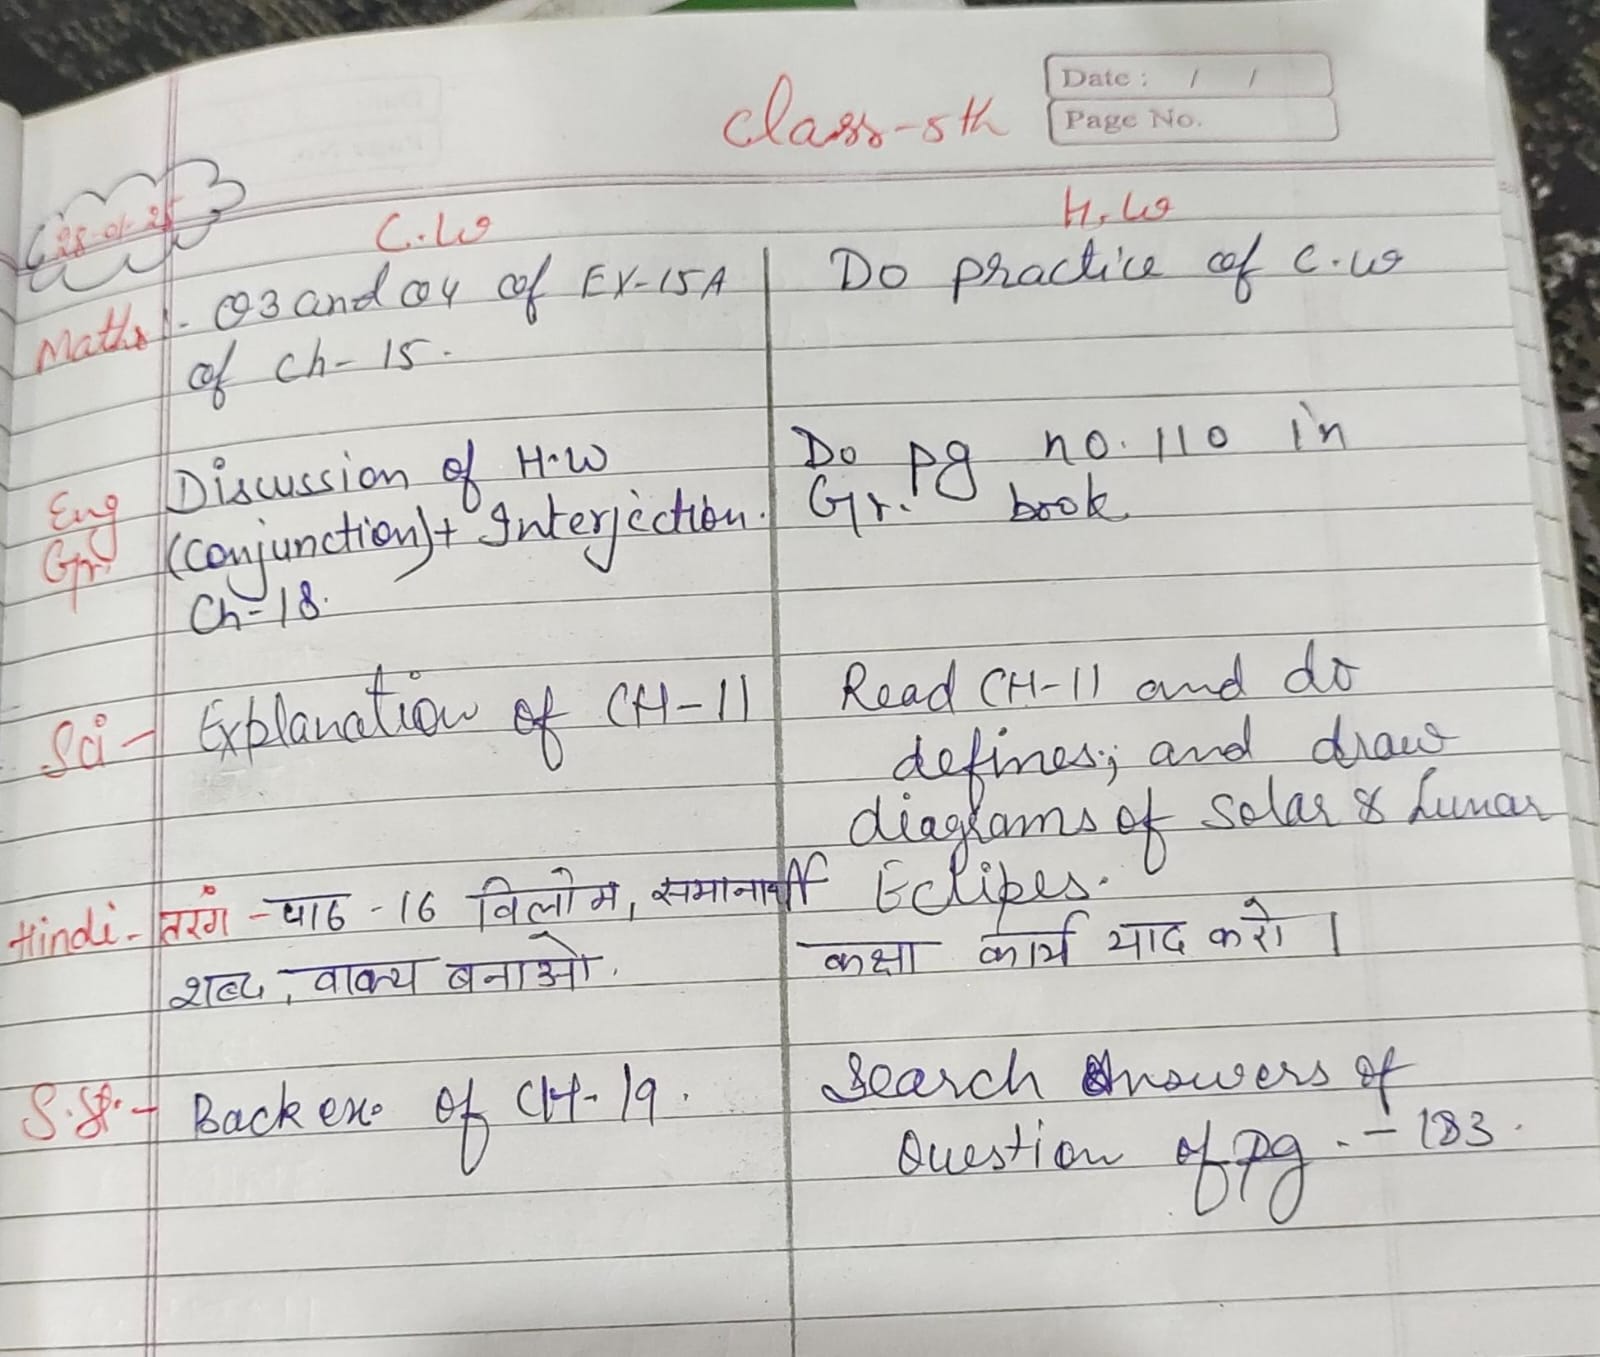 Class-5th
Date : / /
Page No.
28-01-25
C.W
H.W
Maths - Q3 and Q4 of EX-15A
of Ch-15.
Do practice of C.W
Eng
Gr.
Discussion of H.W
(Conjunction) + Interjection.
Ch-18.
Do pg no. 110 in
Gr. book
Sci - Explanation of CH-11
Read CH-11 and do
defines; and draw
diagrams of Solar & Lunar
Eclipes.
Hindi - तरंग - पाठ - 16 विलोम, समानार्थी
शब्द, वाक्य बनाओ.
कक्षा कार्य याद करो ।
S.St. - Back ex. of CH-19.
Search Answers of
Question of pg. - 183.